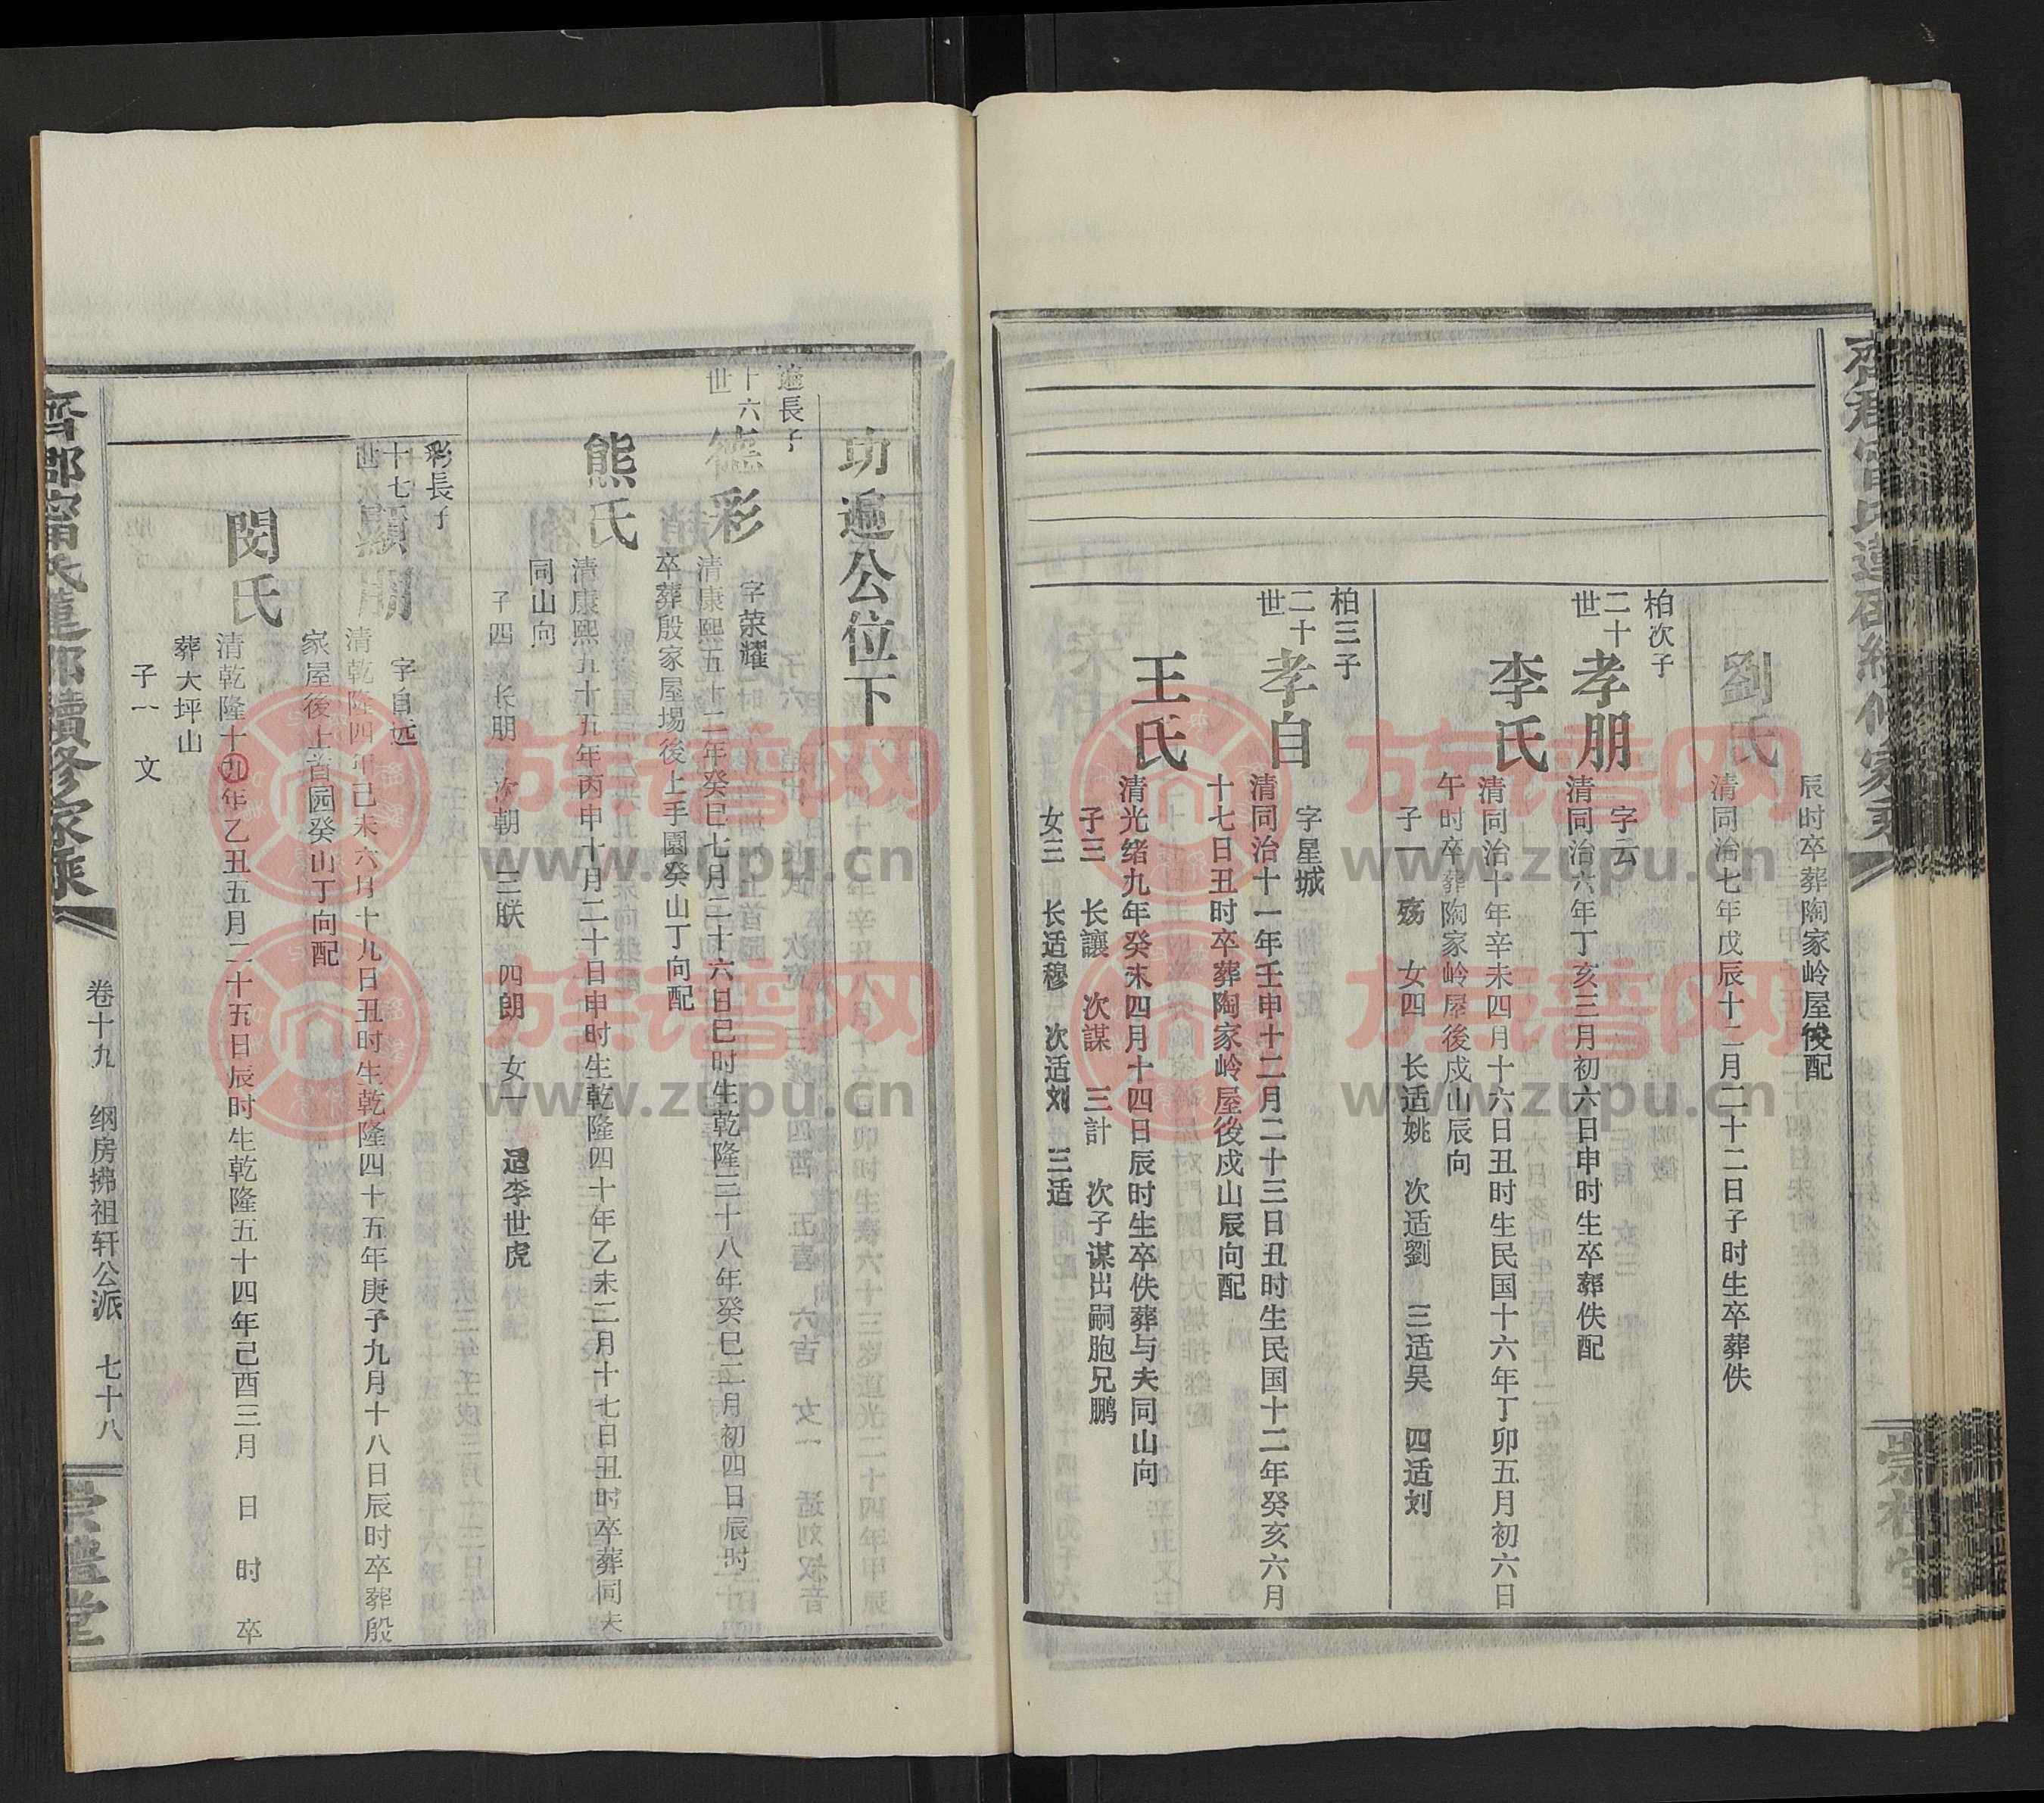 辰时卒葬陶家岭屋後配
劉氏
清同治七年戊辰十二月二十二日子时生卒葬佚
柏次子
二十世
孝朋
字云
清同治六年丁亥三月初六日申时生卒葬佚配
李氏
清同治十年辛未四月十六日丑时生民国十六年丁卯五月初六日
午时卒葬陶家岭屋後戌山辰向
子一 殇 女四 长适姚 次适劉 三适吴 四适刘
柏三子
二十世
孝自
字星城
清同治十一年壬申十二月二十三日丑时生民国十二年癸亥六月
十七日丑时卒葬陶家岭屋後戌山辰向配
王氏
清光绪九年癸未四月十四日辰时生卒佚葬与夫同山向
子三 长讓 次謀 三計 次子谋出嗣胞兄鹏
女三 长适穆 次适刘 三适
功遍公位下
遍長子
十六世
德彩
字荣耀
清康熙五十二年癸巳七月二十六日巳时生乾隆三十八年癸巳二月初四日辰时
卒葬殷家屋場後上手園癸山丁向配
熊氏
清康熙五十五年丙申十月二十日申时生乾隆四十年乙未二月十七日丑时卒葬同夫
同山向
子四 长朋 次朝 三朕 四朗 女一 适李世虎
彩長子
十七世
顯朋
字自远
清乾隆四年己未六月十九日丑时生乾隆四十五年庚子九月十八日辰时卒葬殷
家屋後上首园癸山丁向配
閔氏
清乾隆十九年乙丑五月二十五日辰时生乾隆五十四年己酉三月 日 时 卒
葬大坪山
子一 文
齊郡甯氏蓮邵續修家乘
卷十九 纲房拂祖轩公派 七十八
崇禮堂